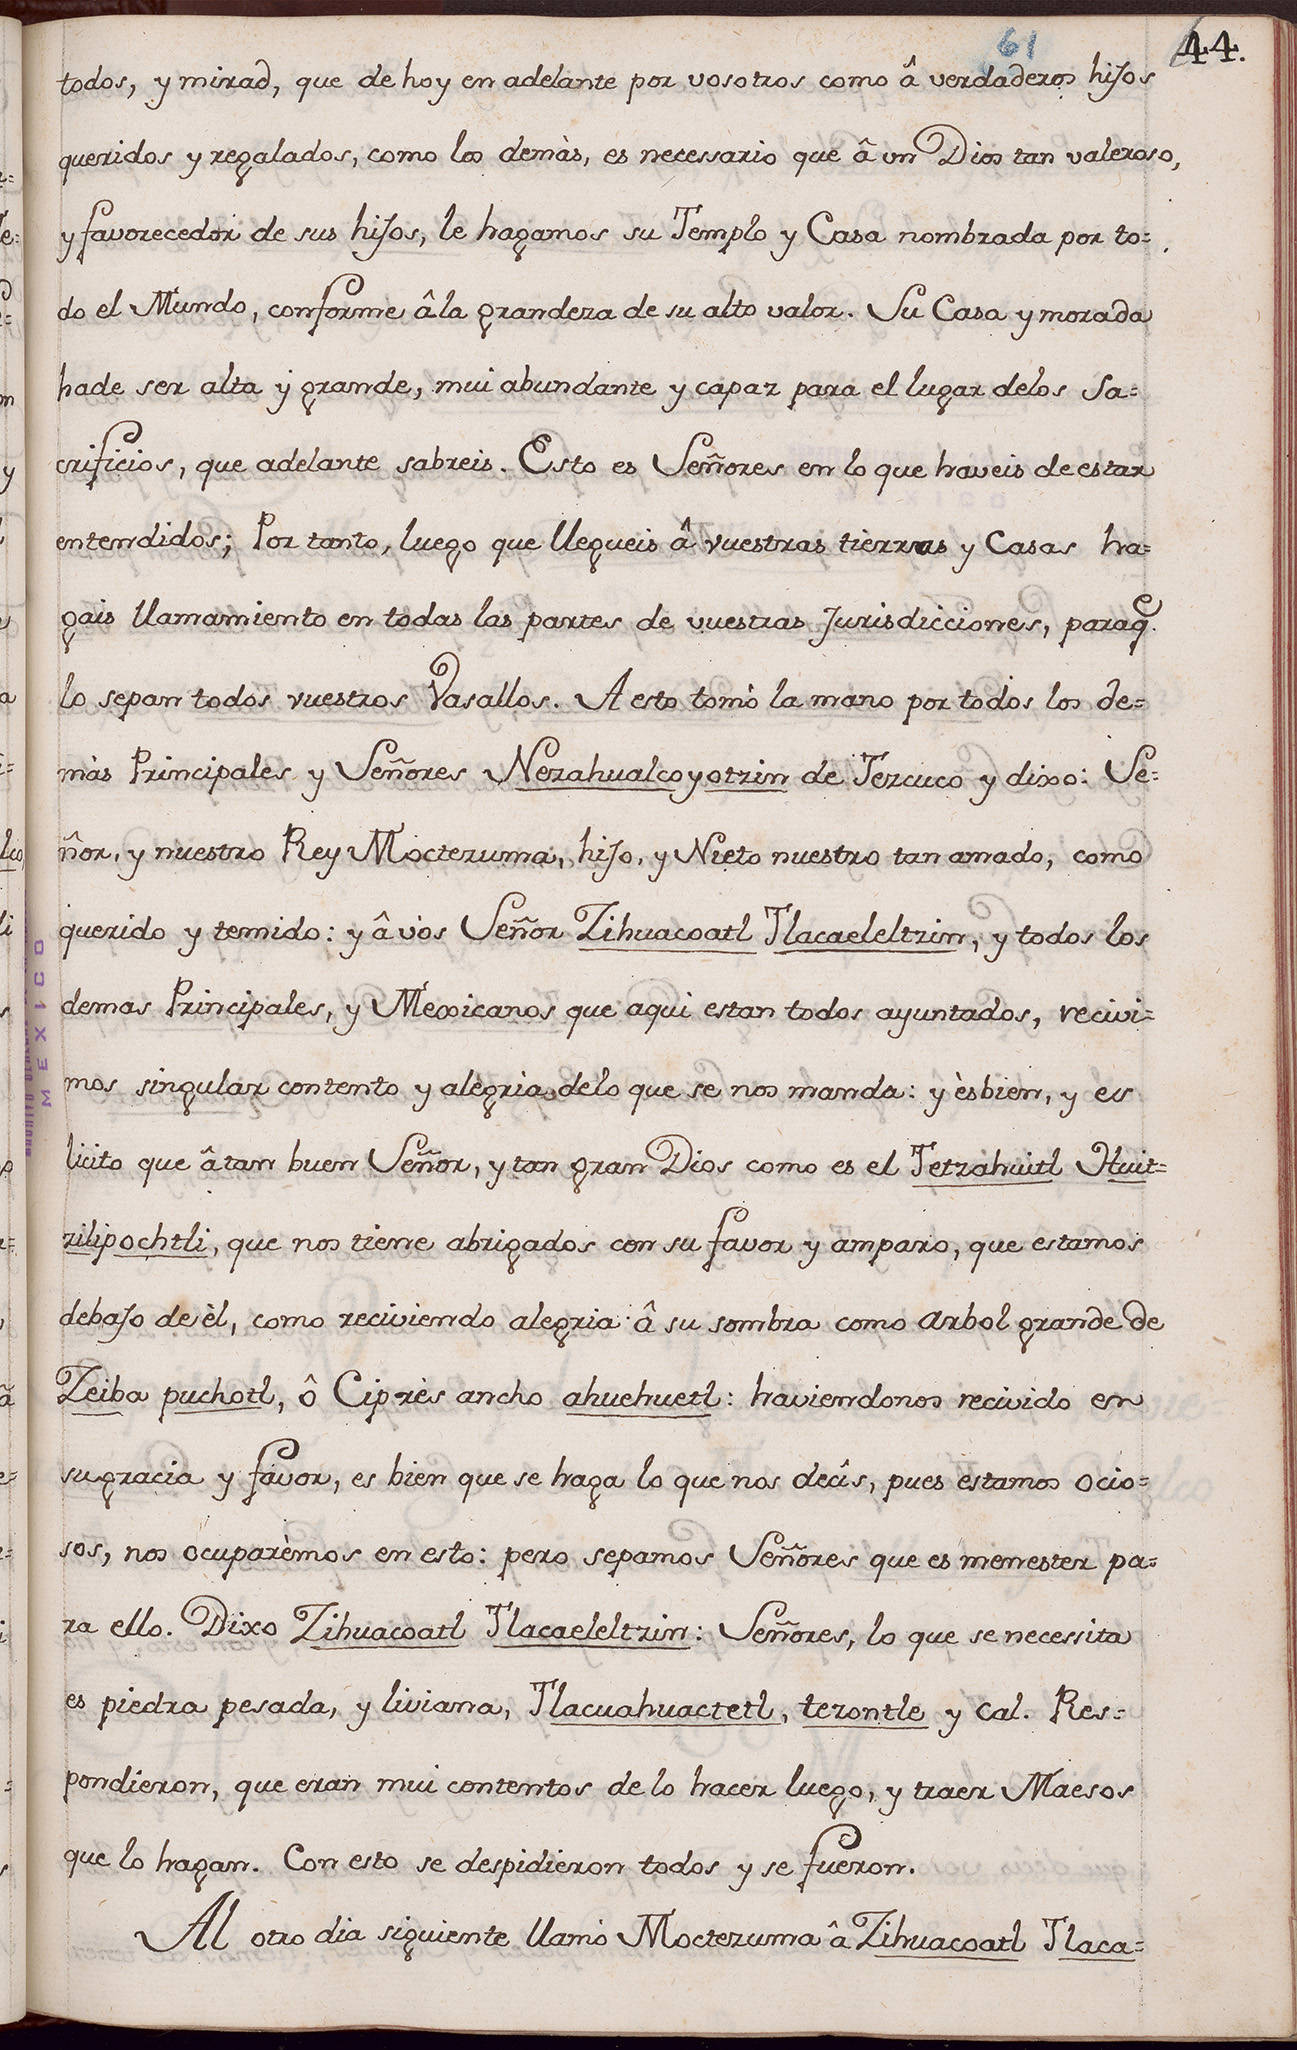 61
44.
todos, y mirad, que de hoy en adelante por vosotros como â verdaderos hijos
queridos y regalados, como los demàs, es necessario que â un Dios tan valeroso,
y favorecedor de sus hijos, le hagamos su Templo y Casa nombrada por to=
do el Mundo, conforme â la grandeza de su alto valor. Su Casa y morada
hade ser alta y grande, mui abundante y capaz para el lugar delos Sa=
crificios, que adelante sabreis. Esto es Señores en lo que haveis de estar
entendidos; Por tanto, luego que llegueis â vuestras tierras y Casas ha=
gais llamamiento en todas las partes de vuestras Jurisdicciones, paraq.e
lo sepan todos vuestros Vasallos. A esto tomò la mano por todos los de=
màs Principales y Señores Nezahualcoyotzin de Tezcuco y dixo: Se=
ñor, y nuestro Rey Moctezuma, hijo, y Nieto nuestro tan amado, como
querido y temido: y â vòs Señor Zihuacoatl Tlacaeleltzin, y todos los
demas Principales, y Mexicanos que aqui estan todos ayuntados, recivi=
mos singular contento y alegria delo que se nos manda: y ès bien, y es
licito que â tan buen Señor, y tan gran Dios como es el Tetzahuitl Huit=
zilipochtli, que nos tiene abrigados con su favor y amparo, que estamos
debajo de èl, como reciviendo alegria â su sombra como arbol grande de
Zeiba puchotl, ô Ciprès ancho ahuehuetl: haviendonos recivido en
su gracia y favor, es bien que se haga lo que nos decìs, pues estamos ocio=
sos, nos ocuparèmos en esto: pero sepamos Señores que es menester pa=
ra ello. Dixo Zihuacoatl Tlacaeleltzin: Señores, lo que se necessita
es piedra pesada, y liviana, Tlacuahuactetl, tezontle y cal. Res=
pondieron, que eran mui contentos de lo hacer luego, y traer Maesos
que lo hagan. Con esto se despidieron todos y se fueron.
Al otro dia siguiente llamò Moctezuma â Zihuacoatl Tlaca=
MEXICO